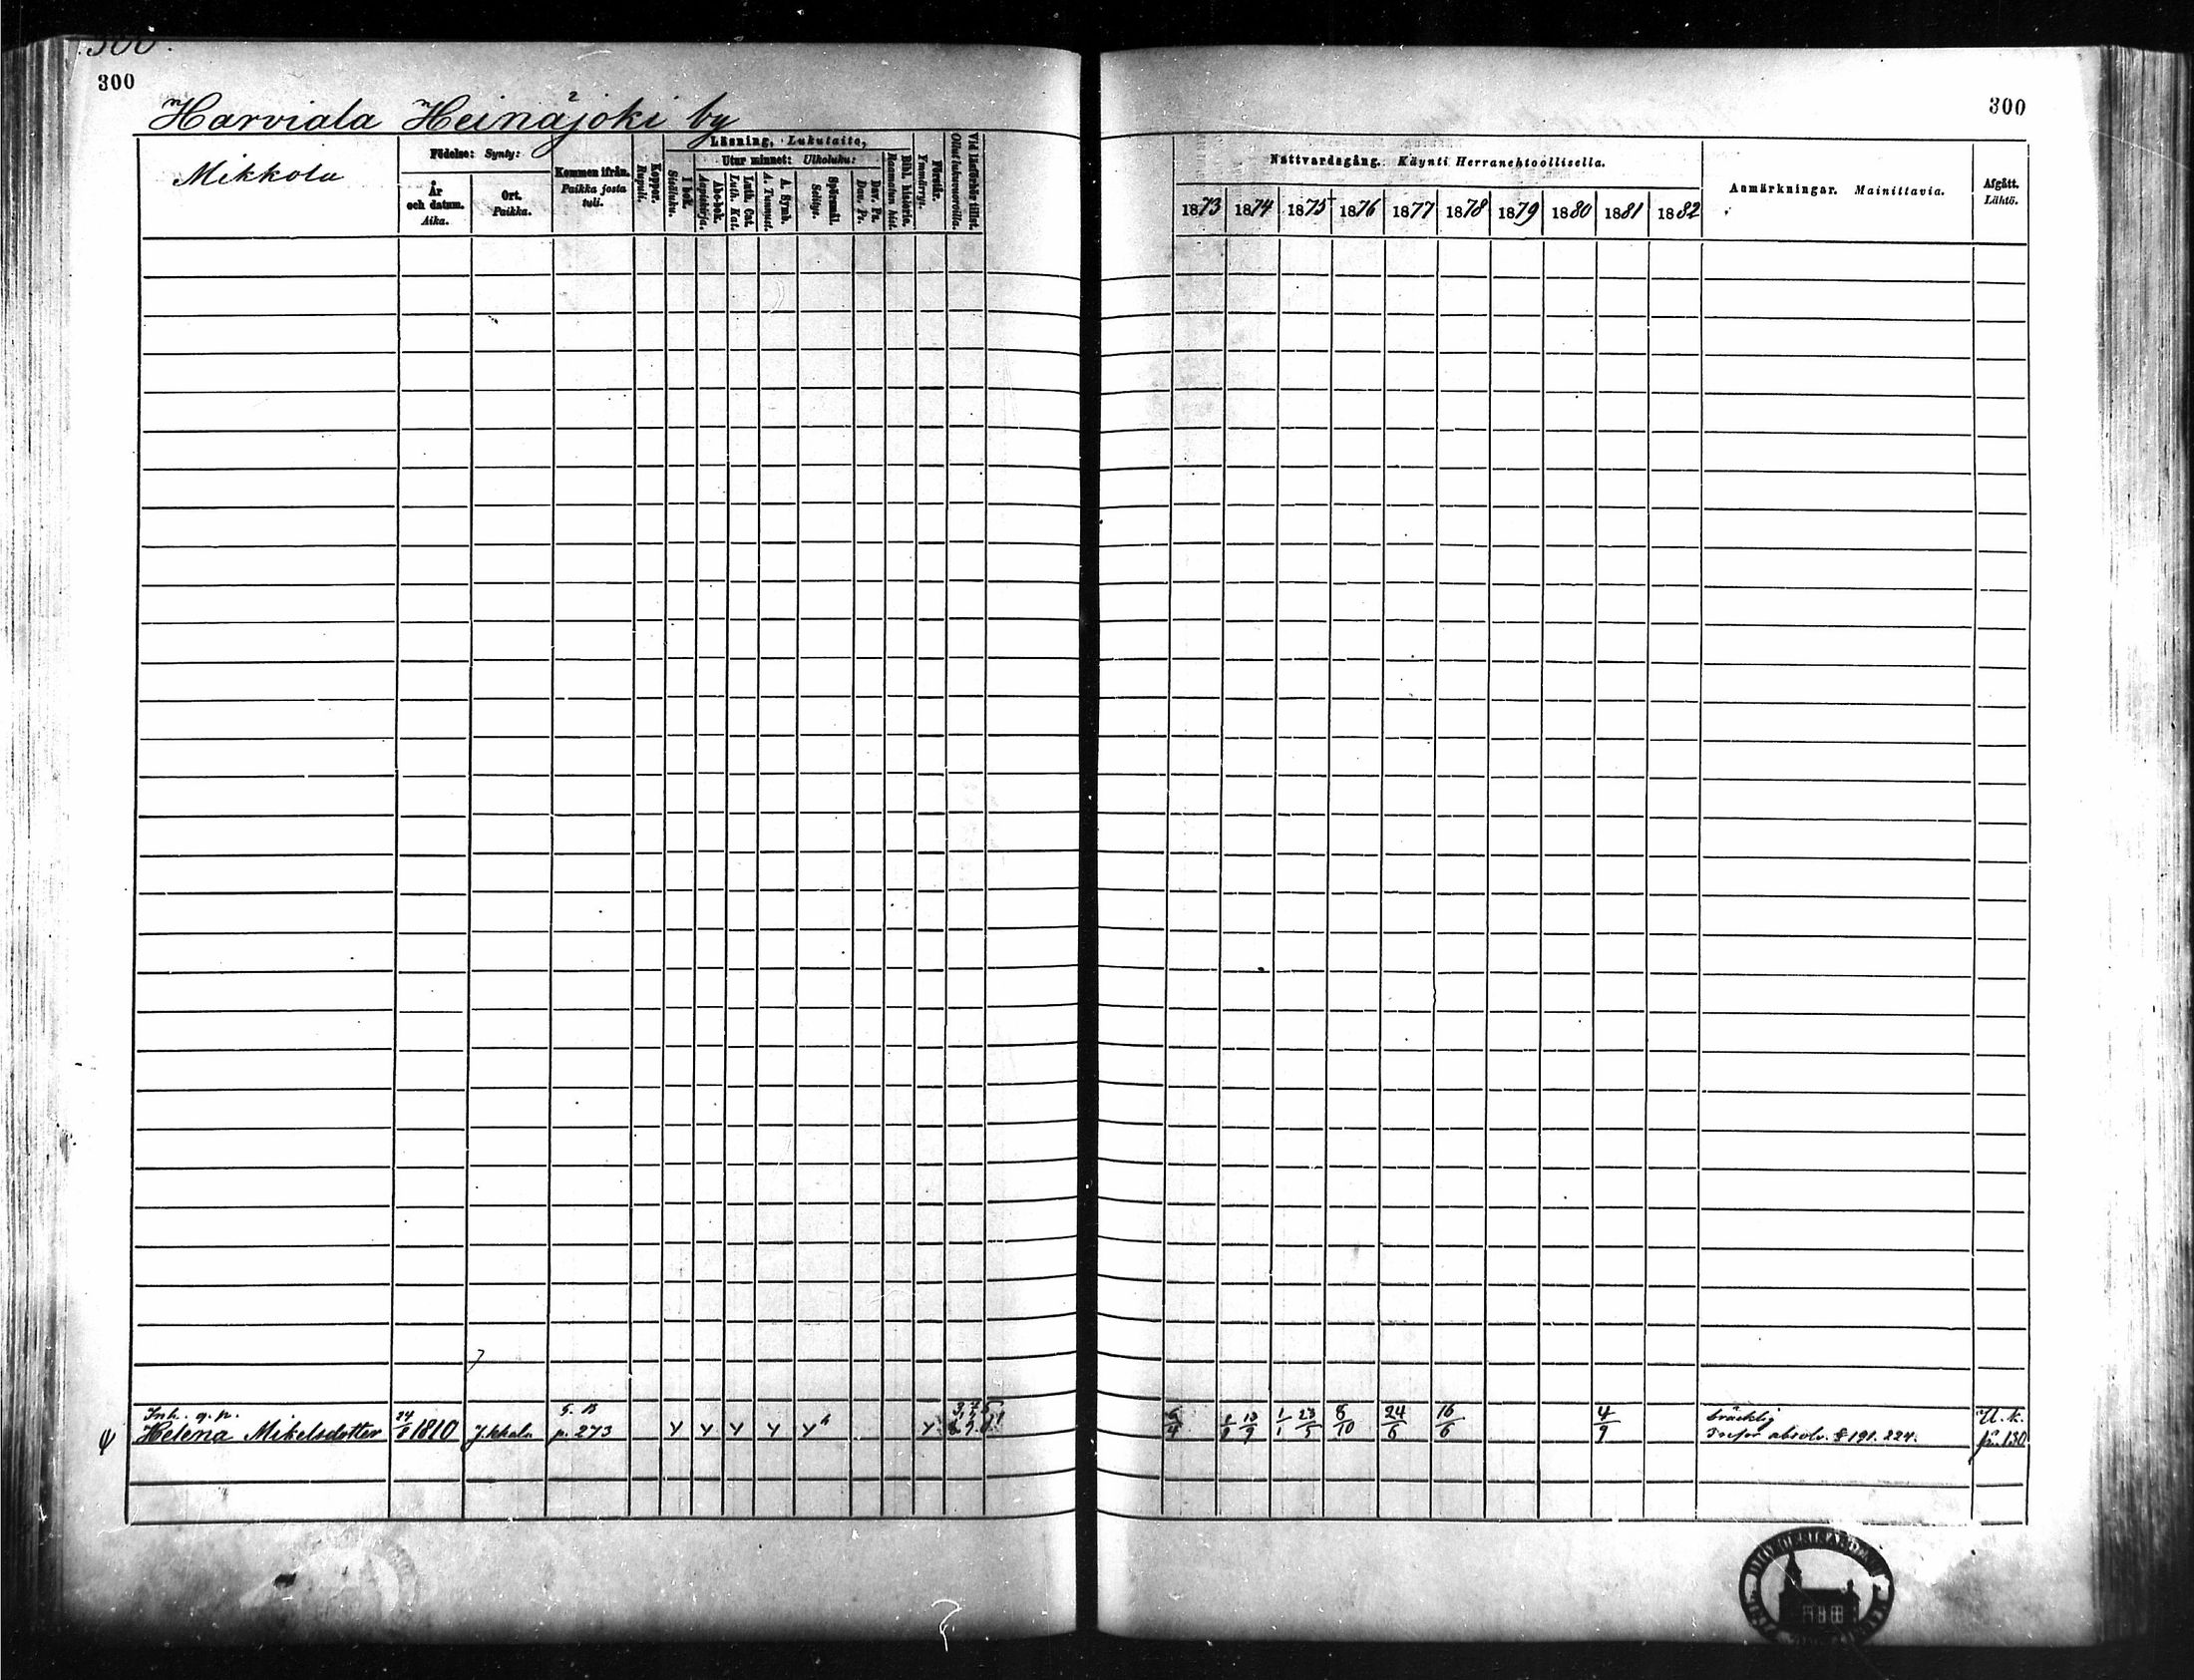 300.
300
Harviala Heinäjoki by
Mikkola
Födelse: Synty:
År och datum. Aika.
Ort. Paikka.
Kommen ifrån. Paikka josta tuli.
Koppor. Rupuli.
Läsning, Lukutaito,
I bok. Sisäluku.
Utur minnet: Ulkoluku:
Abc-bok. Aapiskirja.
Luth. Cat. Luth. Kat.
A. Symb. A. Tunnust.
Spörsmål. Selitys.
Dav. Ps. Dav. Ps.
Bibl. historia. Raamatun hist.
Förstår. Ymmärrys.
Vid läsförhör tillst. Ollut lukuvuoroilla.
Inh. q.p.
Helena Mikelsdotter 24/8 1810 Jkkala S. B p. 273
300
Nattvardsgång. Käynti Herranehtoollisella.
1873 1874 1875 1876 1877 1878 1879 1880 1881 1882
Anmärkningar. Mainittavia.
Afgått. Lähtö.
13/9 1/1 23/5 8/10 24/6 16/6 4/9
bräcklig
absolv. § 191. 224.
U. k.
130